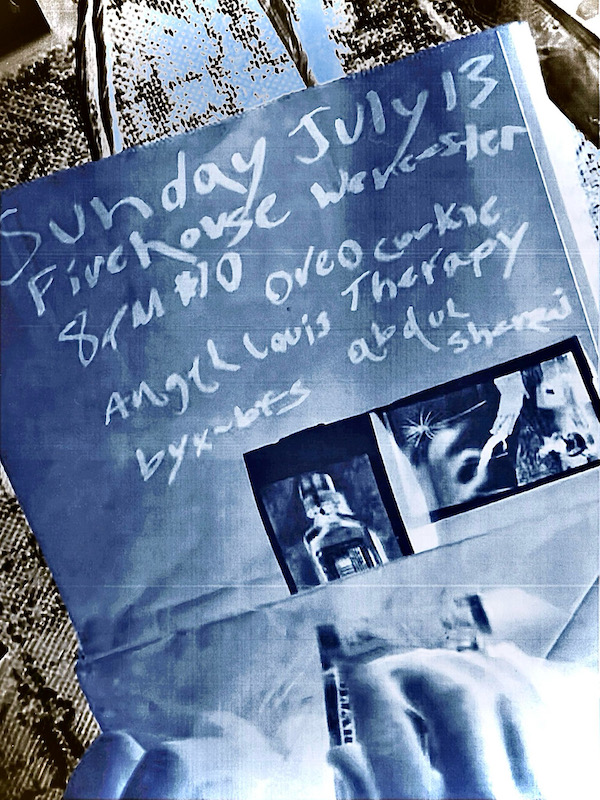 Sunday July 13
Firehouse Worcester
8PM $10 Oreo cookie
Angel Louis Therapy
byx-bfs abdul
sherazi